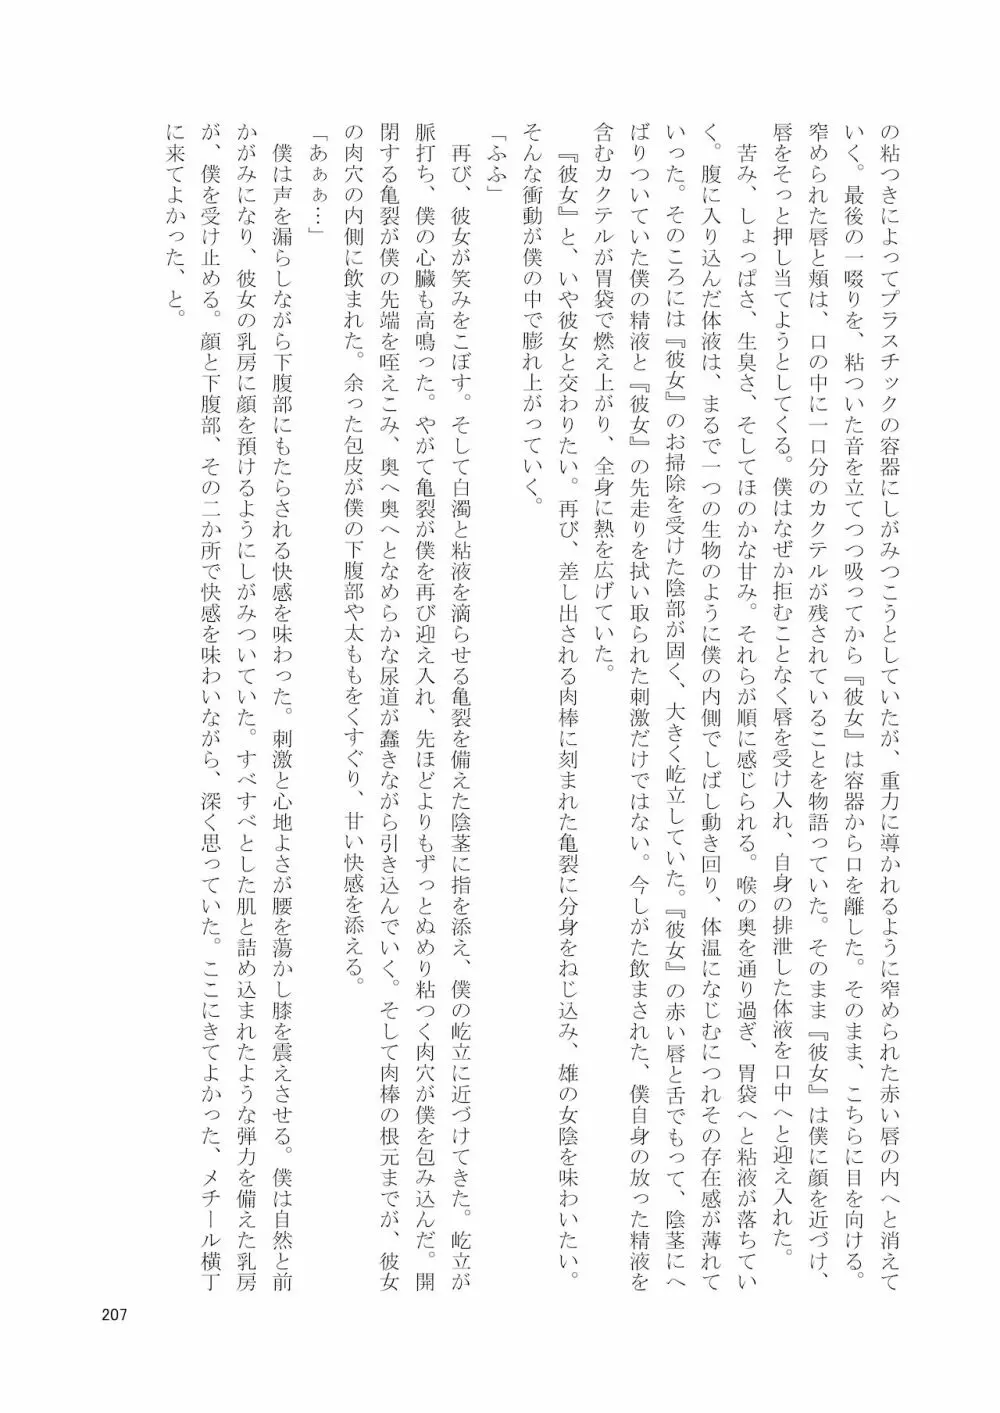 の粘つきによってプラスチックの容器にしがみつこうとしていたが、重力に導かれるように窄められた赤い唇の内へと消えて
いく。最後の一啜りを、粘ついた音を立てつつ吸ってから『彼女』は容器から口を離した。そのまま、こちらに目を向ける。
窄められた唇と頬は、口の中に一口分のカクテルが残されていることを物語っていた。そのまま『彼女』は僕に顔を近づけ、
唇をそっと押し当てようとしてくる。僕はなぜか拒むことなく唇を受け入れ、自身の排泄した体液を口中へと迎え入れた。
苦み、しょっぱさ、生臭さ、そしてほのかな甘み。それらが順に感じられる。喉の奥を通り過ぎ、胃袋へと粘液が落ちてい
く。腹に入り込んだ体液は、まるで一つの生物のように僕の内側でしばし動き回り、体温になじむにつれその存在感が薄れて
いった。そのころには『彼女』のお掃除を受けた陰部が固く、大きく屹立していた。『彼女』の赤い唇と舌でもって、陰茎にへ
ばりついていた僕の精液と『彼女』の先走りを拭い取られた刺激だけではない。今しがた飲まされた、僕自身の放った精液を
含むカクテルが胃袋で燃え上がり、全身に熱を広げていた。
『彼女』と、いや彼女と交わりたい。再び、差し出される肉棒に刻まれた亀裂に分身をねじ込み、雄の女陰を味わいたい。
そんな衝動が僕の中で膨れ上がっていく。
「ふふ」
再び、彼女が笑みをこぼす。そして白濁と粘液を滴らせる亀裂を備えた陰茎に指を添え、僕の屹立に近づけてきた。屹立が
脈打ち、僕の心臓も高鳴った。やがて亀裂が僕を再び迎え入れ、先ほどよりもずっとぬめり粘つく肉穴が僕を包み込んだ。開
閉する亀裂が僕の先端を咥えこみ、奥へ奥へとなめらかな尿道が蠢きながら引き込んでいく。そして肉棒の根元までが、彼女
の肉穴の内側に飲まれた。余った包皮が僕の下腹部や太ももをくすぐり、甘い快感を添える。
「あぁぁ…」
僕は声を漏らしながら下腹部にもたらされる快感を味わった。刺激と心地よさが腰を蕩かし膝を震えさせる。僕は自然と前
かがみになり、彼女の乳房に顔を預けるようにしがみついていた。すべすべとした肌と詰め込まれたような弾力を備えた乳房
が、僕を受け止める。顔と下腹部、その二か所で快感を味わいながら、深く思っていた。ここにきてよかった、メチール横丁
に来てよかった、と。
207